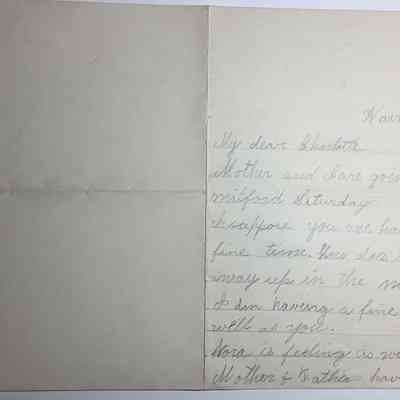 My dear Charlotte
Mother and I are goin
milford Saturday.
I suppose you are ha
fine time. How does
away up in the m
I am having a fine
well as you.
Nora is feeling as w
Mother & Father hav